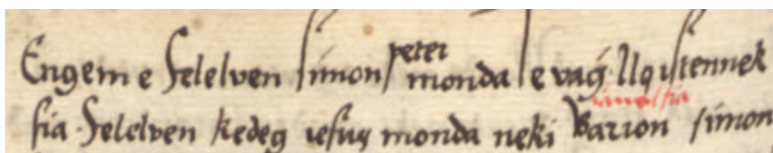 Engem e felelven ſimon peter monda Te vag ÿllȯ iſtennek
fia · felelven kedeg ieſuſ monda neki Barion ſimon